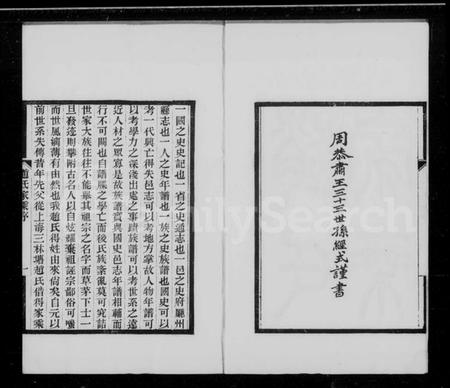 周恭肅王三十三世孫經式謹書
一國之史史記也一省之史通志也一邑之史府廳州
縣志也一人之史年譜也一族之史族譜也國史可以
考一代興亡得失邑志可以考地方掌故人物年譜可
以考學力之深淺出處之事蹟族譜可以考世系之遠
近人材之眾寡是故族譜實與國史邑志年譜相輔而
行不可闕也自譜牒之學亡而後氏族紊亂莫可究詰
世家大族往往不能舉其祖宗之名字而草茅下士一
旦發達則攀附古名人以自炫耀棄祖誣宗鄙俗可嗤
而世風澆薄有由然也我趙氏得姓由來尚矣自元以
前世系失傳昔年先父從上海三林塘趙氏借得家乘
趙氏家乘序
一
FamilySearch